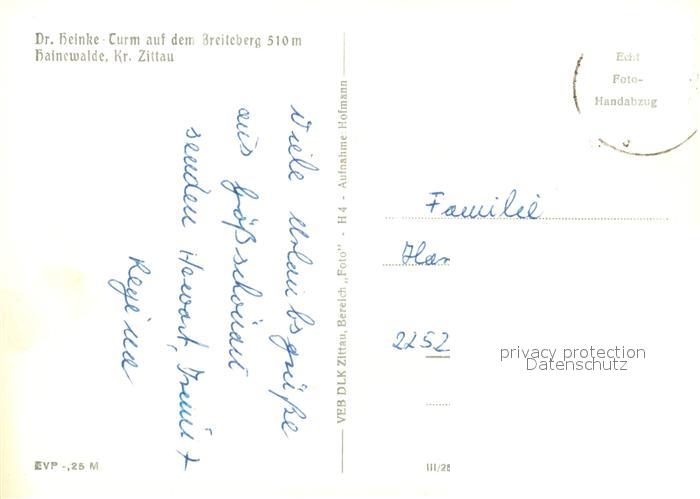 Dr. Heinke-Turm auf dem Breiteberg 510 m
Hainewalde, Kr. Zittau
Viele Urlaubsgrüße
aus Großschönau
senden Irmit +
Regina
EVP -,25 M
VEB DLK Zittau, Bereich „Foto" - H4 - Aufnahme Hofmann
Echt
Foto-
Handabzug
Familie
Han
2252
privacy protection
Datenschutz
III/28